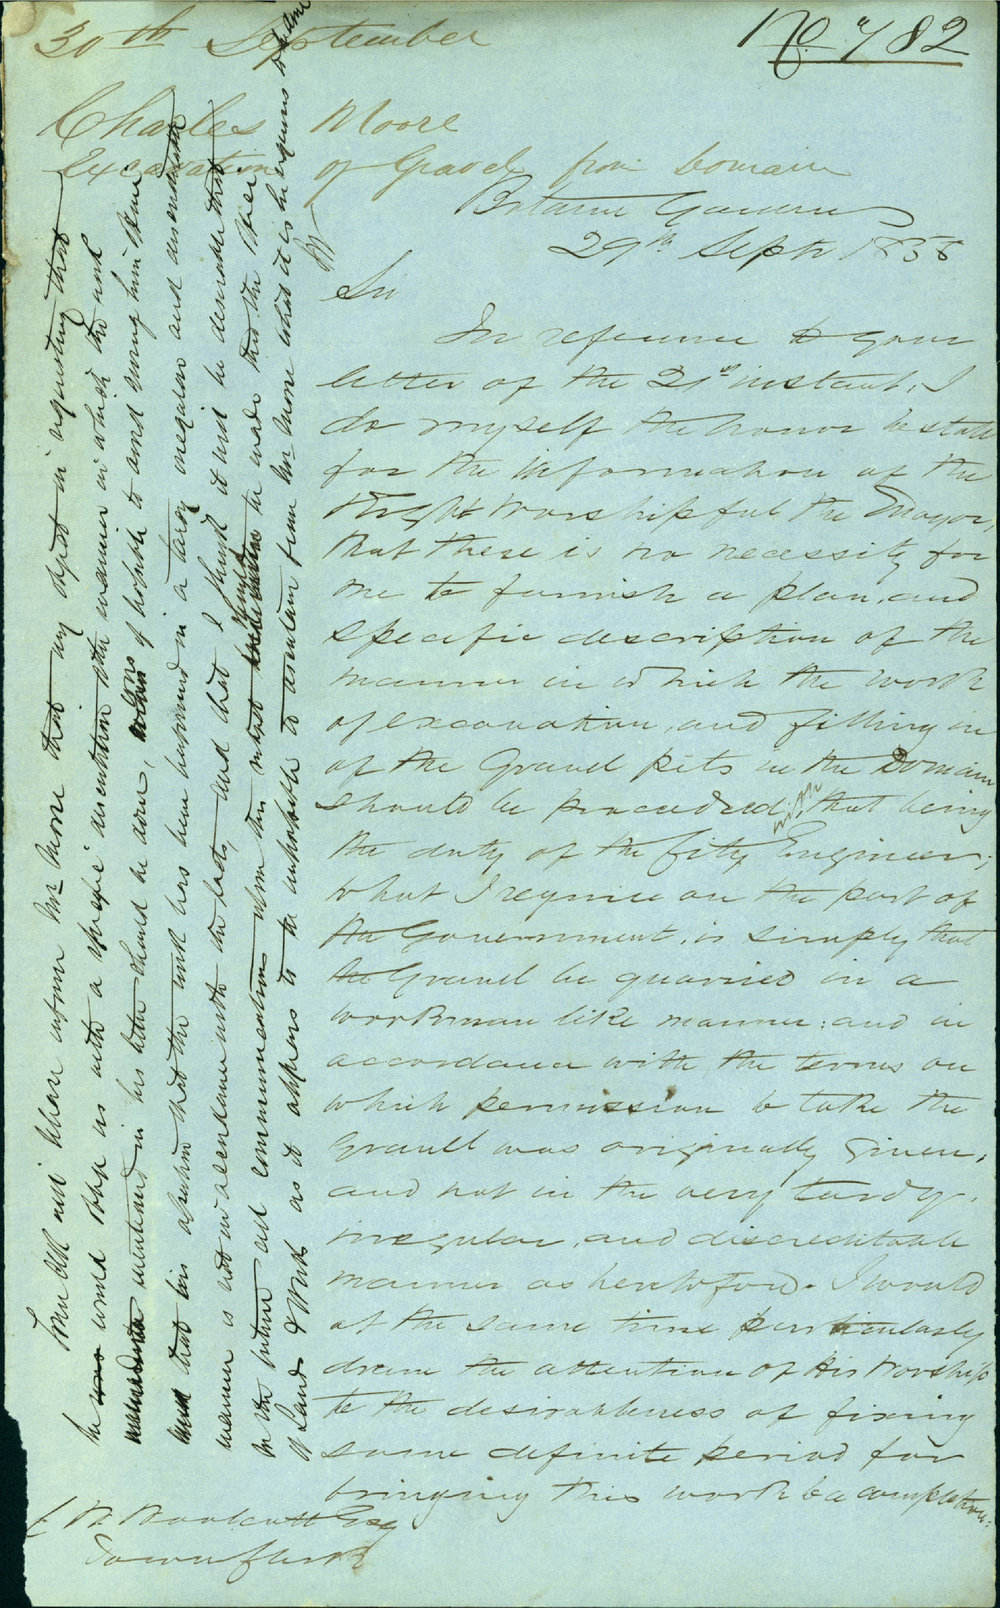 30th September
No 782
Charles Moore
Excavation of Gravel from Domain
Botanic Gardens
29th Septr 1858
Sir
In reference to your
letter of the 21st instant, I
do myself the honor to state
for the information of the
Right Worshipful the Mayor,
that there is no necessity for
me to furnish a plan, and
specific description of the
manner in which the work
of excavation, and filling in
of the Gravel pits in the Domain
should be proceeded with, that being
the duty of the City Engineer;
what I require on the part of
the Government, is simply that
the Gravel be quarried in a
workman like manner: and in
accordance with the terms on
which permission to take the
Gravell was originally given,
and not in the very tardy,
irregular, and discreditable
manner as heretofore. I would
at the same time particularly
draw the attention of His Worship
to the desirableness of fixing
some definite period for
bringing this work to a completion:
C H Woolcott Esq
Town Clerk
Town Clk will please inform Mr Moore that my object in requesting that
he would state in with a specific description the manner in which the work
mentioned in his letter should be done, was if possible to amend
that his assertion that the work has been performed in a tardy irregular and discreditable
manner is not in accordance with the facts, and that I think it will be desirable that
in the future all communications upon this subject should be made thro the
of Lands & Works as it appears to be impossible to ascertain from Mr Moore what it is he requires to be done